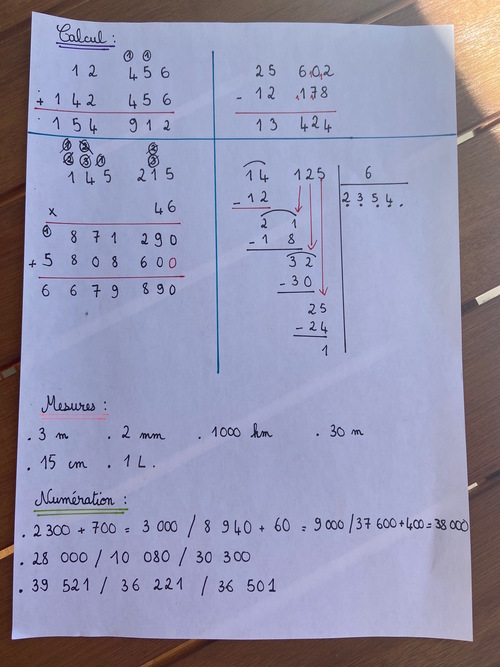 Calcul :
① ①
12 456
+ 142 456
154 912
25 602
- 12 178
13 424
145 215
x 46
① 871 290
+ 5 808 600
6 679 890
14 125 6
- 12 2354.
21
- 18
32
- 30
25
- 24
1
Mesures :
. 3 m . 2 mm . 1000 km . 30 m
. 15 cm . 1 L.
Numération :
. 2 300 + 700 = 3 000 / 8 940 + 60 = 9 000 / 37 600 + 400 = 38 000
. 28 000 / 10 080 / 30 300
. 39 521 / 36 221 / 36 501